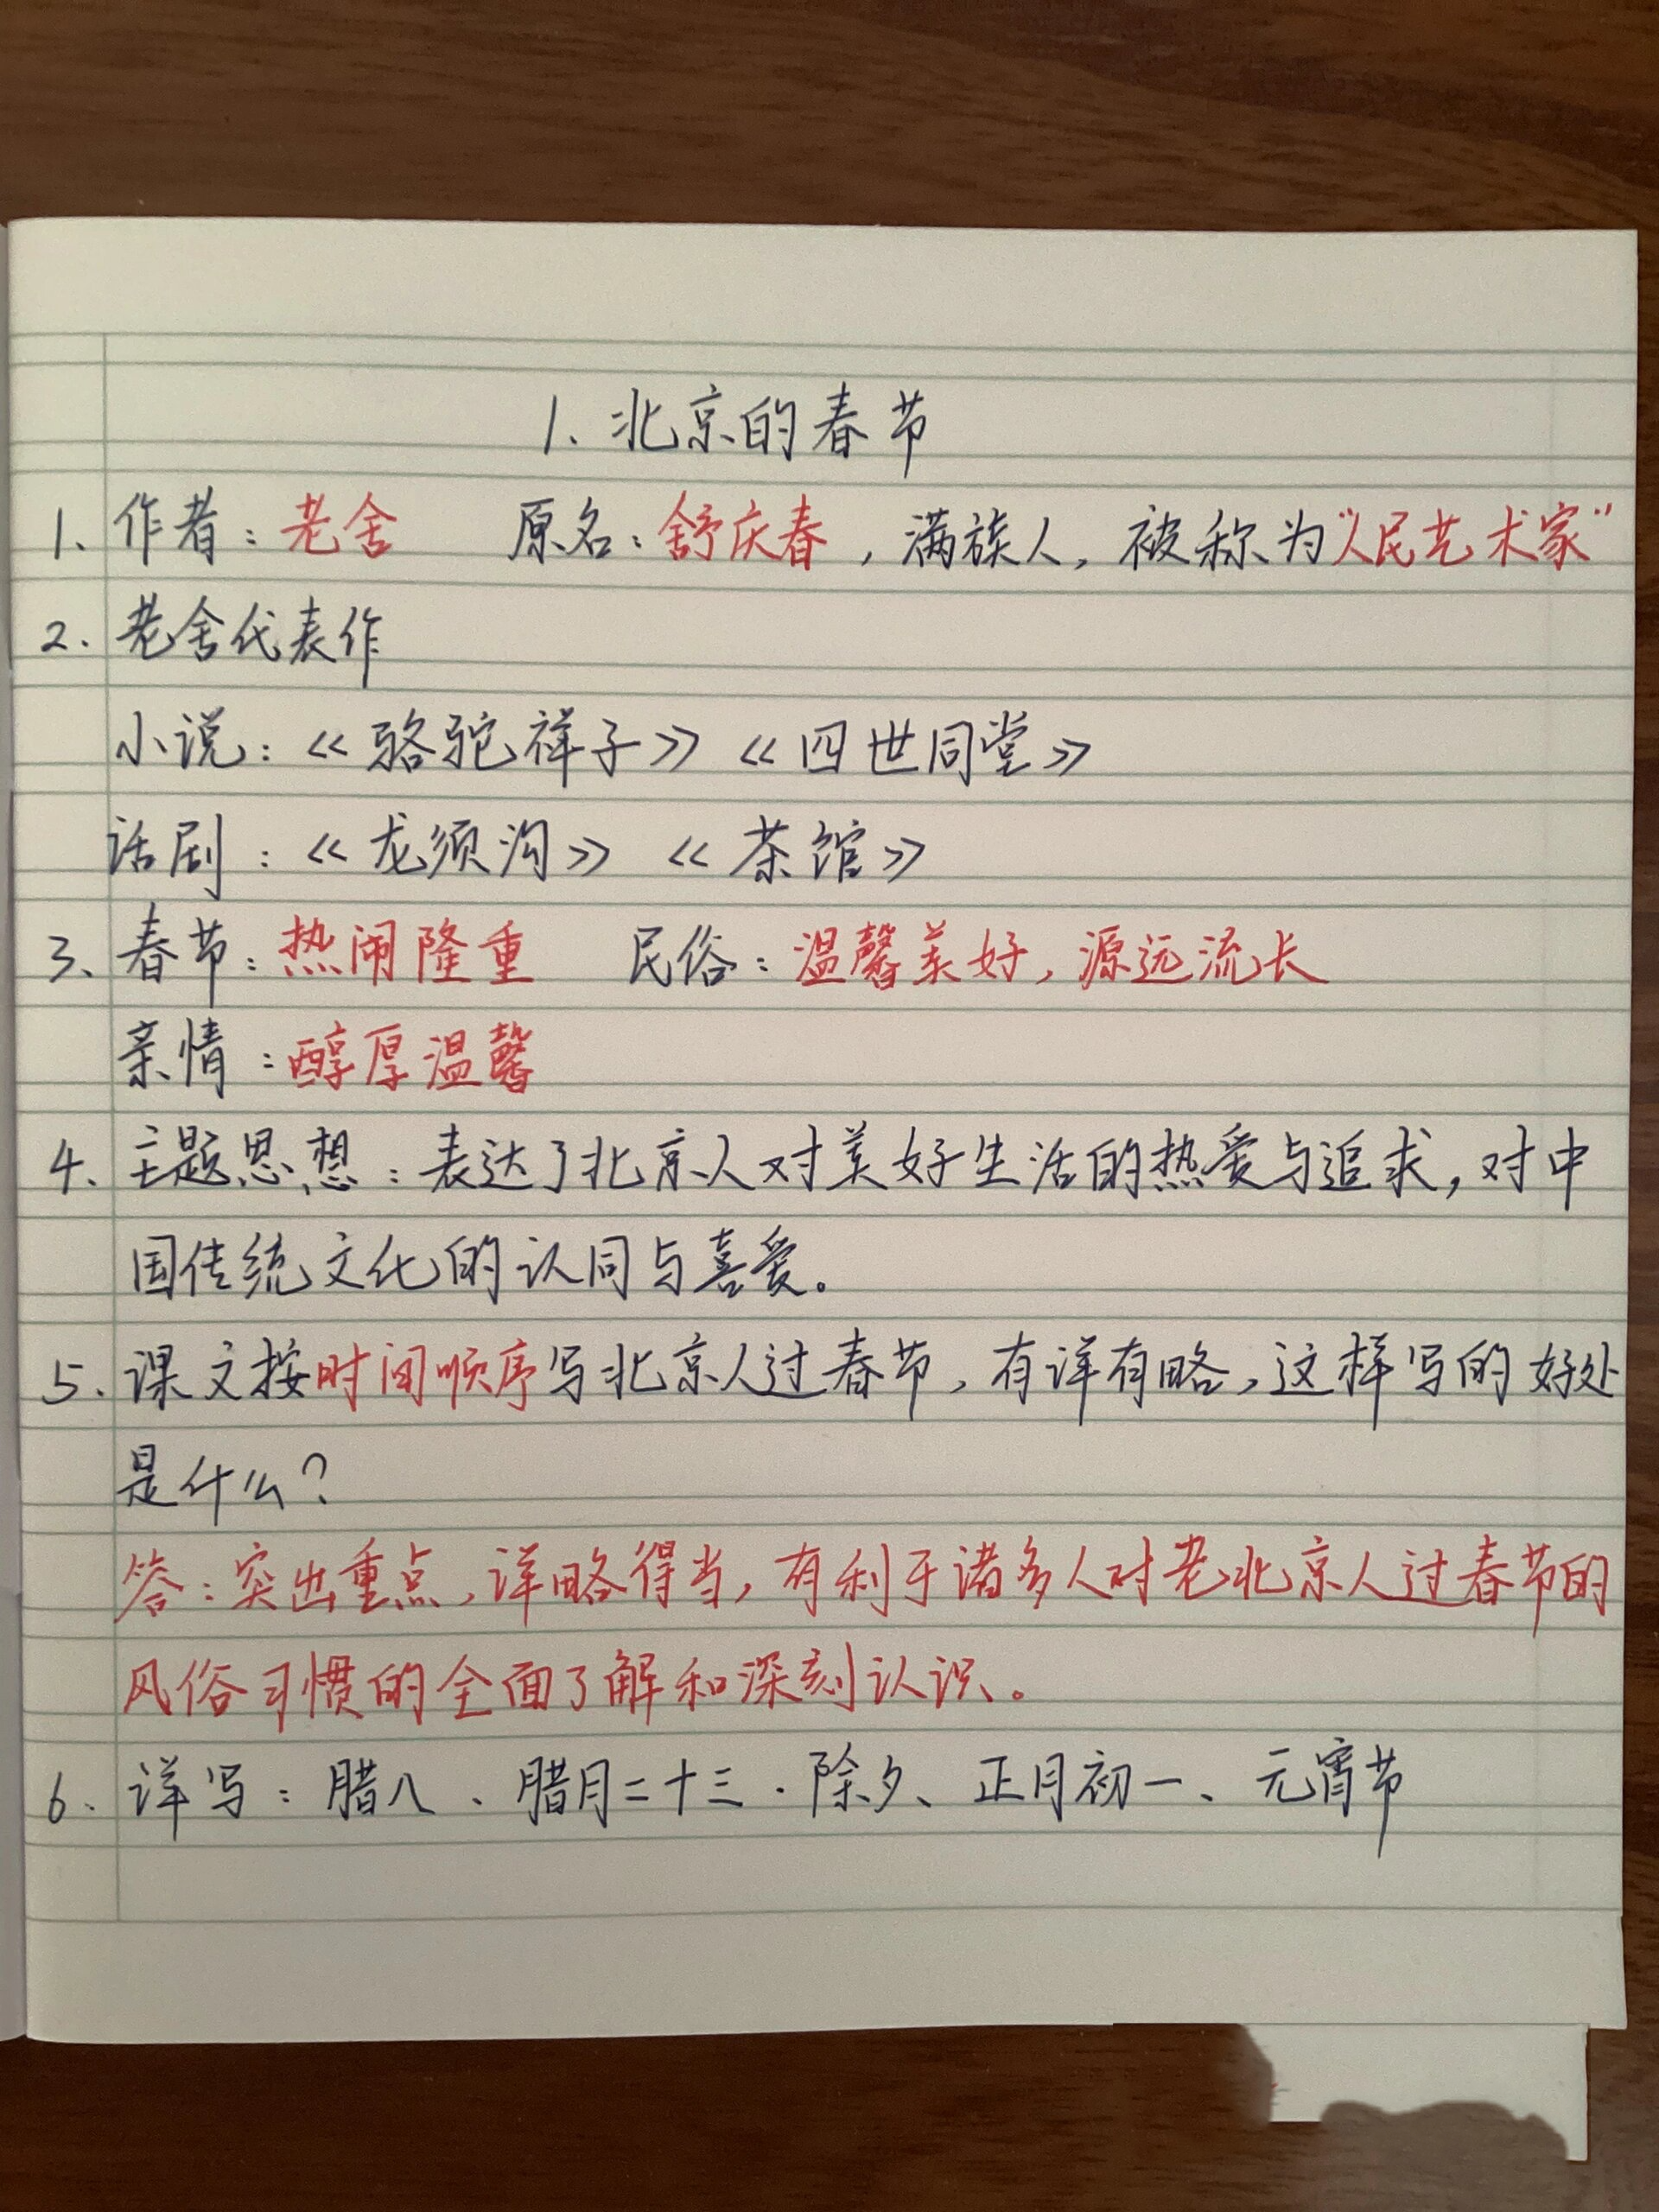 1、北京的春节
1、作者：老舍 原名：舒庆春，满族人，被称为“人民艺术家”
2、老舍代表作
小说：《骆驼祥子》《四世同堂》
话剧：《龙须沟》《茶馆》
3、春节：热闹隆重 民俗：温馨美好，源远流长
亲情：醇厚温馨
4、主题思想：表达了北京人对美好生活的热爱与追求，对中
国传统文化的认同与喜爱。
5、课文按时间顺序写北京人过春节，有详有略，这样写的好处
是什么？
答：突出重点，详略得当，有利于诸多人对老北京人过春节的
风俗习惯的全面了解和深刻认识。
6、详写：腊八、腊月二十三、除夕、正月初一、元宵节